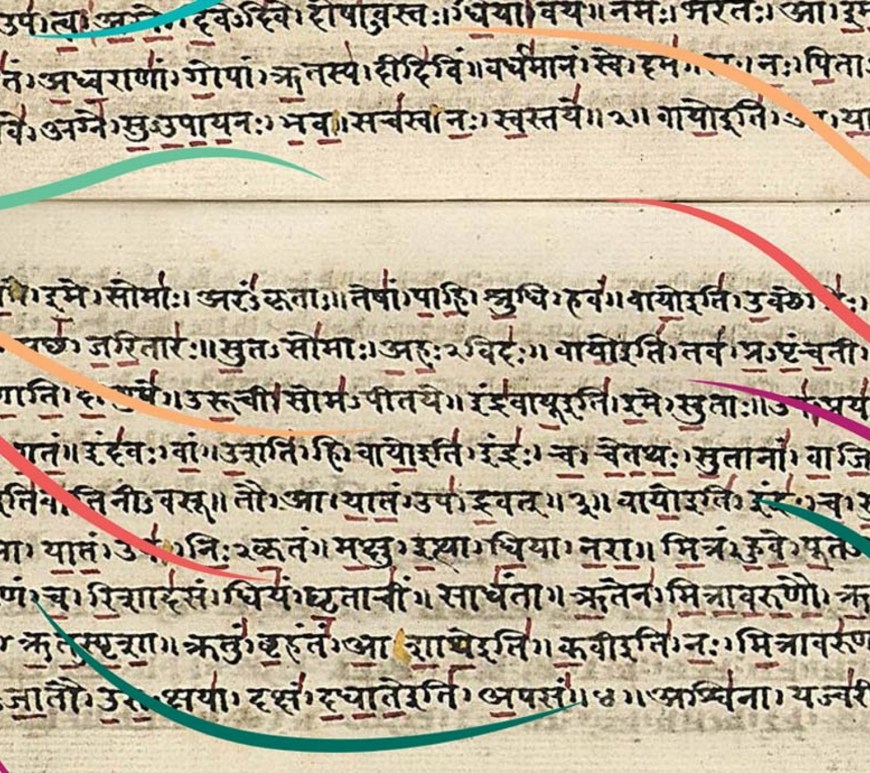 त्वा । अग्ने । दिवेऽदिवे । दोषाऽवस्तः । धिया । वयं ॥ नमः । भरंतः । आ । इम
तं । अध्वराणां । गोपां । ऋतस्य । दीदिविं ॥ वर्धमानं । स्वे । दमे ॥ नः । पिता
अग्ने । सुऽउपायनः । भव ॥ सचस्व । नः । स्वस्तये ॥ २ ॥ वायोइति । या
इमे । सोमाः । अरंऽकृताः ॥ तेषां । पाहि । श्रुधि । हवं ॥ वायोइति । उक्थे
जरितारः ॥ सुतऽसोमाः । अहःऽविदः ॥ वायोइति । तव । प्रऽपृंचती
उरूची । सोमऽपीतये ॥ इंद्रवायूइति । इमे । सुताः ॥
गतं ॥ इंदवः । वां । उशंति । हि । वायोइति । इंद्रः । च । चेतथः । सुतानां । वाजि
वाजिनीऽवसू ॥ तौ । आ । यातं । उप । द्रवत् ॥ ३ ॥ वायोइति । इंद्रः । च
आ । यातं । उप । निःऽकृतं ॥ मक्षु । इत्था । धिया । नरा ॥ मित्रं । हुवे । पूत
च । रिशादसं । धियं । घृताचीं । साधंता ॥ ऋतेन । मित्रावरुणौ । ऋ
ऋतऽस्पृशा ॥ क्रतुं । बृहंतं । आशाथेइति ॥ कवीइति । नः । मित्रावरुण
जातौ । उरुऽक्षया । दक्षं । दधातेइति । अपसं ॥ ४ ॥ अश्विना । यज्वरी